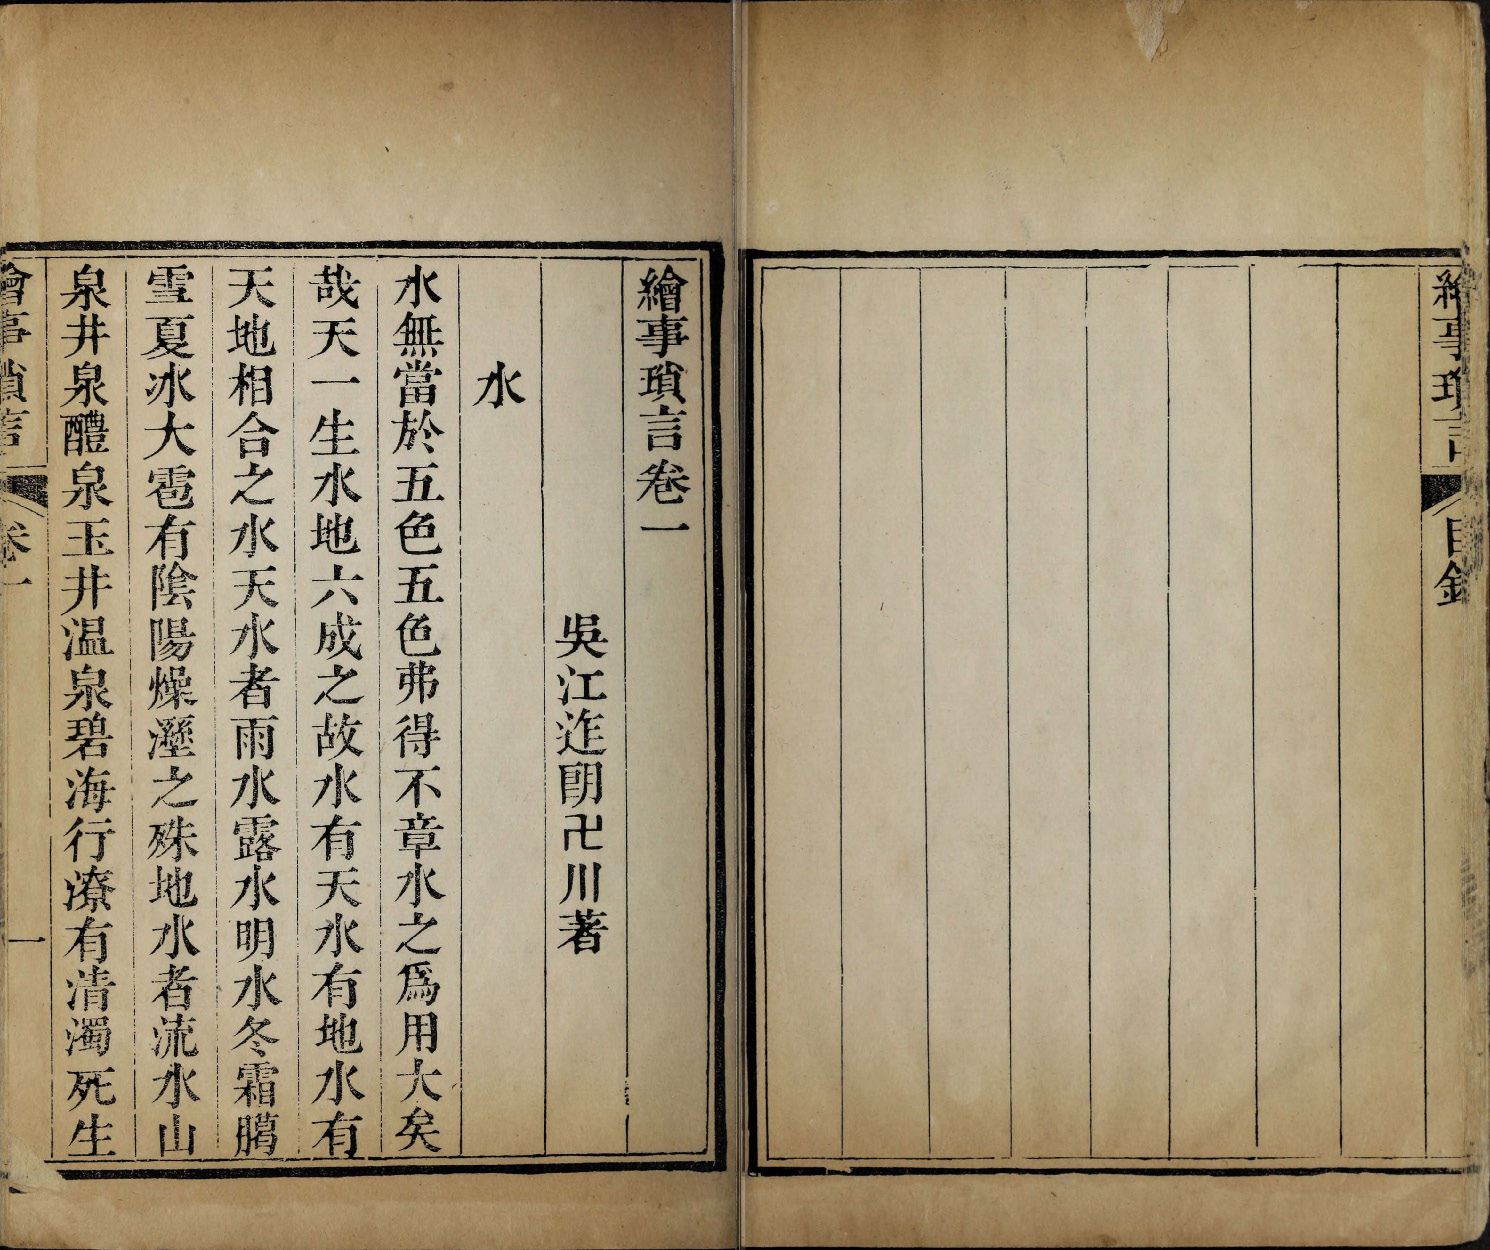 繪事瑣言 目錄
繪事瑣言卷一
吳江迮朗卍川著
水
水無當於五色五色弗得不章水之爲用大矣
哉天一生水地六成之故水有天水有地水有
天地相合之水天水者雨水露水明水冬霜臈
雪夏冰大雹有陰陽燥溼之殊地水者流水山
泉井泉醴泉玉井温泉碧海行潦有清濁死生
繪事瑣言 卷一 一